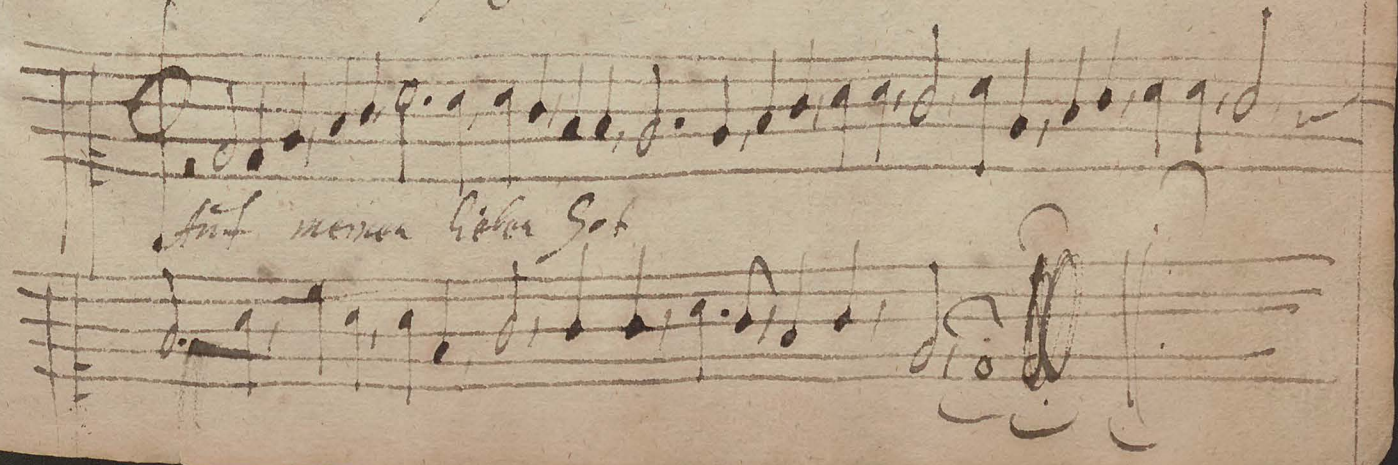 Auf meinen lieben Got